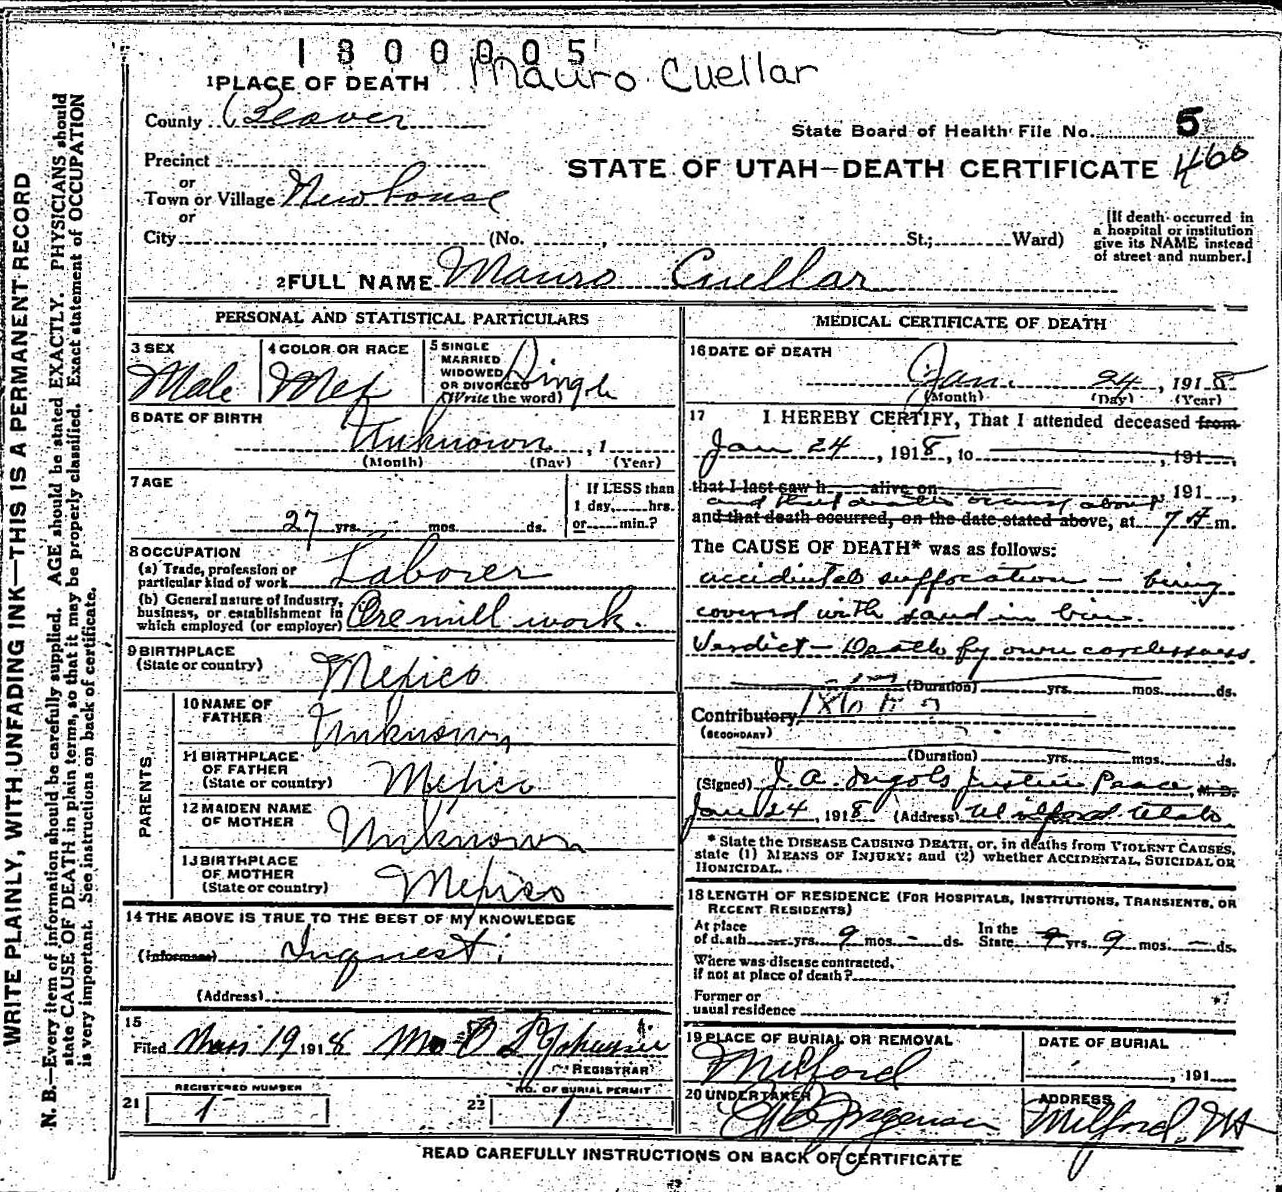 1300005
Mauro Cuellar
1 PLACE OF DEATH
County Beaver
State Board of Health File No. 5
460
Precinct
STATE OF UTAH—DEATH CERTIFICATE
or
Town or Village Newhouse
or
City (No. , St.; Ward)
[If death occurred in
a hospital or institution
give its NAME instead
of street and number.]
2 FULL NAME Mauro Cuellar
PERSONAL AND STATISTICAL PARTICULARS
3 SEX
Male
4 COLOR OR RACE
Mex
5 SINGLE
MARRIED
WIDOWED
OR DIVORCED
(Write the word)
Single
6 DATE OF BIRTH
Unknown , 1
(Month) (Day) (Year)
7 AGE
27 yrs. mos. ds.
If LESS than
1 day, hrs.
or min.?
8 OCCUPATION
(a) Trade, profession or
particular kind of work Laborer
(b) General nature of industry,
business, or establishment in
which employed (or employer) Ore mill work.
9 BIRTHPLACE
(State or country)
Mexico
PARENTS
10 NAME OF
FATHER
Unknown
11 BIRTHPLACE
OF FATHER
(State or country) Mexico
12 MAIDEN NAME
OF MOTHER
Unknown
13 BIRTHPLACE
OF MOTHER
(State or country) Mexico
14 THE ABOVE IS TRUE TO THE BEST OF MY KNOWLEDGE
(Informant) Inquest
(Address)
15
Filed 19 1918
REGISTRAR
REGISTERED NUMBER
21 1
NO. OF BURIAL PERMIT
22 1
MEDICAL CERTIFICATE OF DEATH
16 DATE OF DEATH
Jan. 24, 1918
(Month) (Day) (Year)
17 I HEREBY CERTIFY, That I attended deceased from
Jan 24, 1918, to , 191
that I last saw h alive on , 191 ,
and that death occurred about
and that death occurred, on the date stated above, at 7 A m.
The CAUSE OF DEATH* was as follows:
accidental suffocation — being
covered with sand in bin.
Verdict — Death by own carelessness.
(Duration) yrs. mos. ds.
Contributory
(SECONDARY)
(Duration) yrs. mos. ds.
(Signed) J. A. Justice Peace, M. D.
Jan 24, 1918 (Address) Milford Utah.
* State the DISEASE CAUSING DEATH, or, in deaths from VIOLENT CAUSES,
state (1) MEANS OF INJURY; and (2) whether ACCIDENTAL, SUICIDAL OR
HOMICIDAL.
18 LENGTH OF RESIDENCE (FOR HOSPITALS, INSTITUTIONS, TRANSIENTS, OR
RECENT RESIDENTS)
At place
of death — yrs. 9 mos. - ds.
In the
State yrs. 9 mos. — ds.
Where was disease contracted,
if not at place of death?
Former or
usual residence
19 PLACE OF BURIAL OR REMOVAL
Milford
DATE OF BURIAL
, 191
20 UNDERTAKER
Jorgensen
ADDRESS
Milford, Ut
READ CAREFULLY INSTRUCTIONS ON BACK OF CERTIFICATE
WRITE PLAINLY, WITH UNFADING INK—THIS IS A PERMANENT RECORD
N. B.—Every item of information should be carefully supplied. AGE should be stated EXACTLY. PHYSICIANS should
state CAUSE OF DEATH in plain terms, so that it may be properly classified. Exact statement of OCCUPATION
is very important. See instructions on back of certificate.